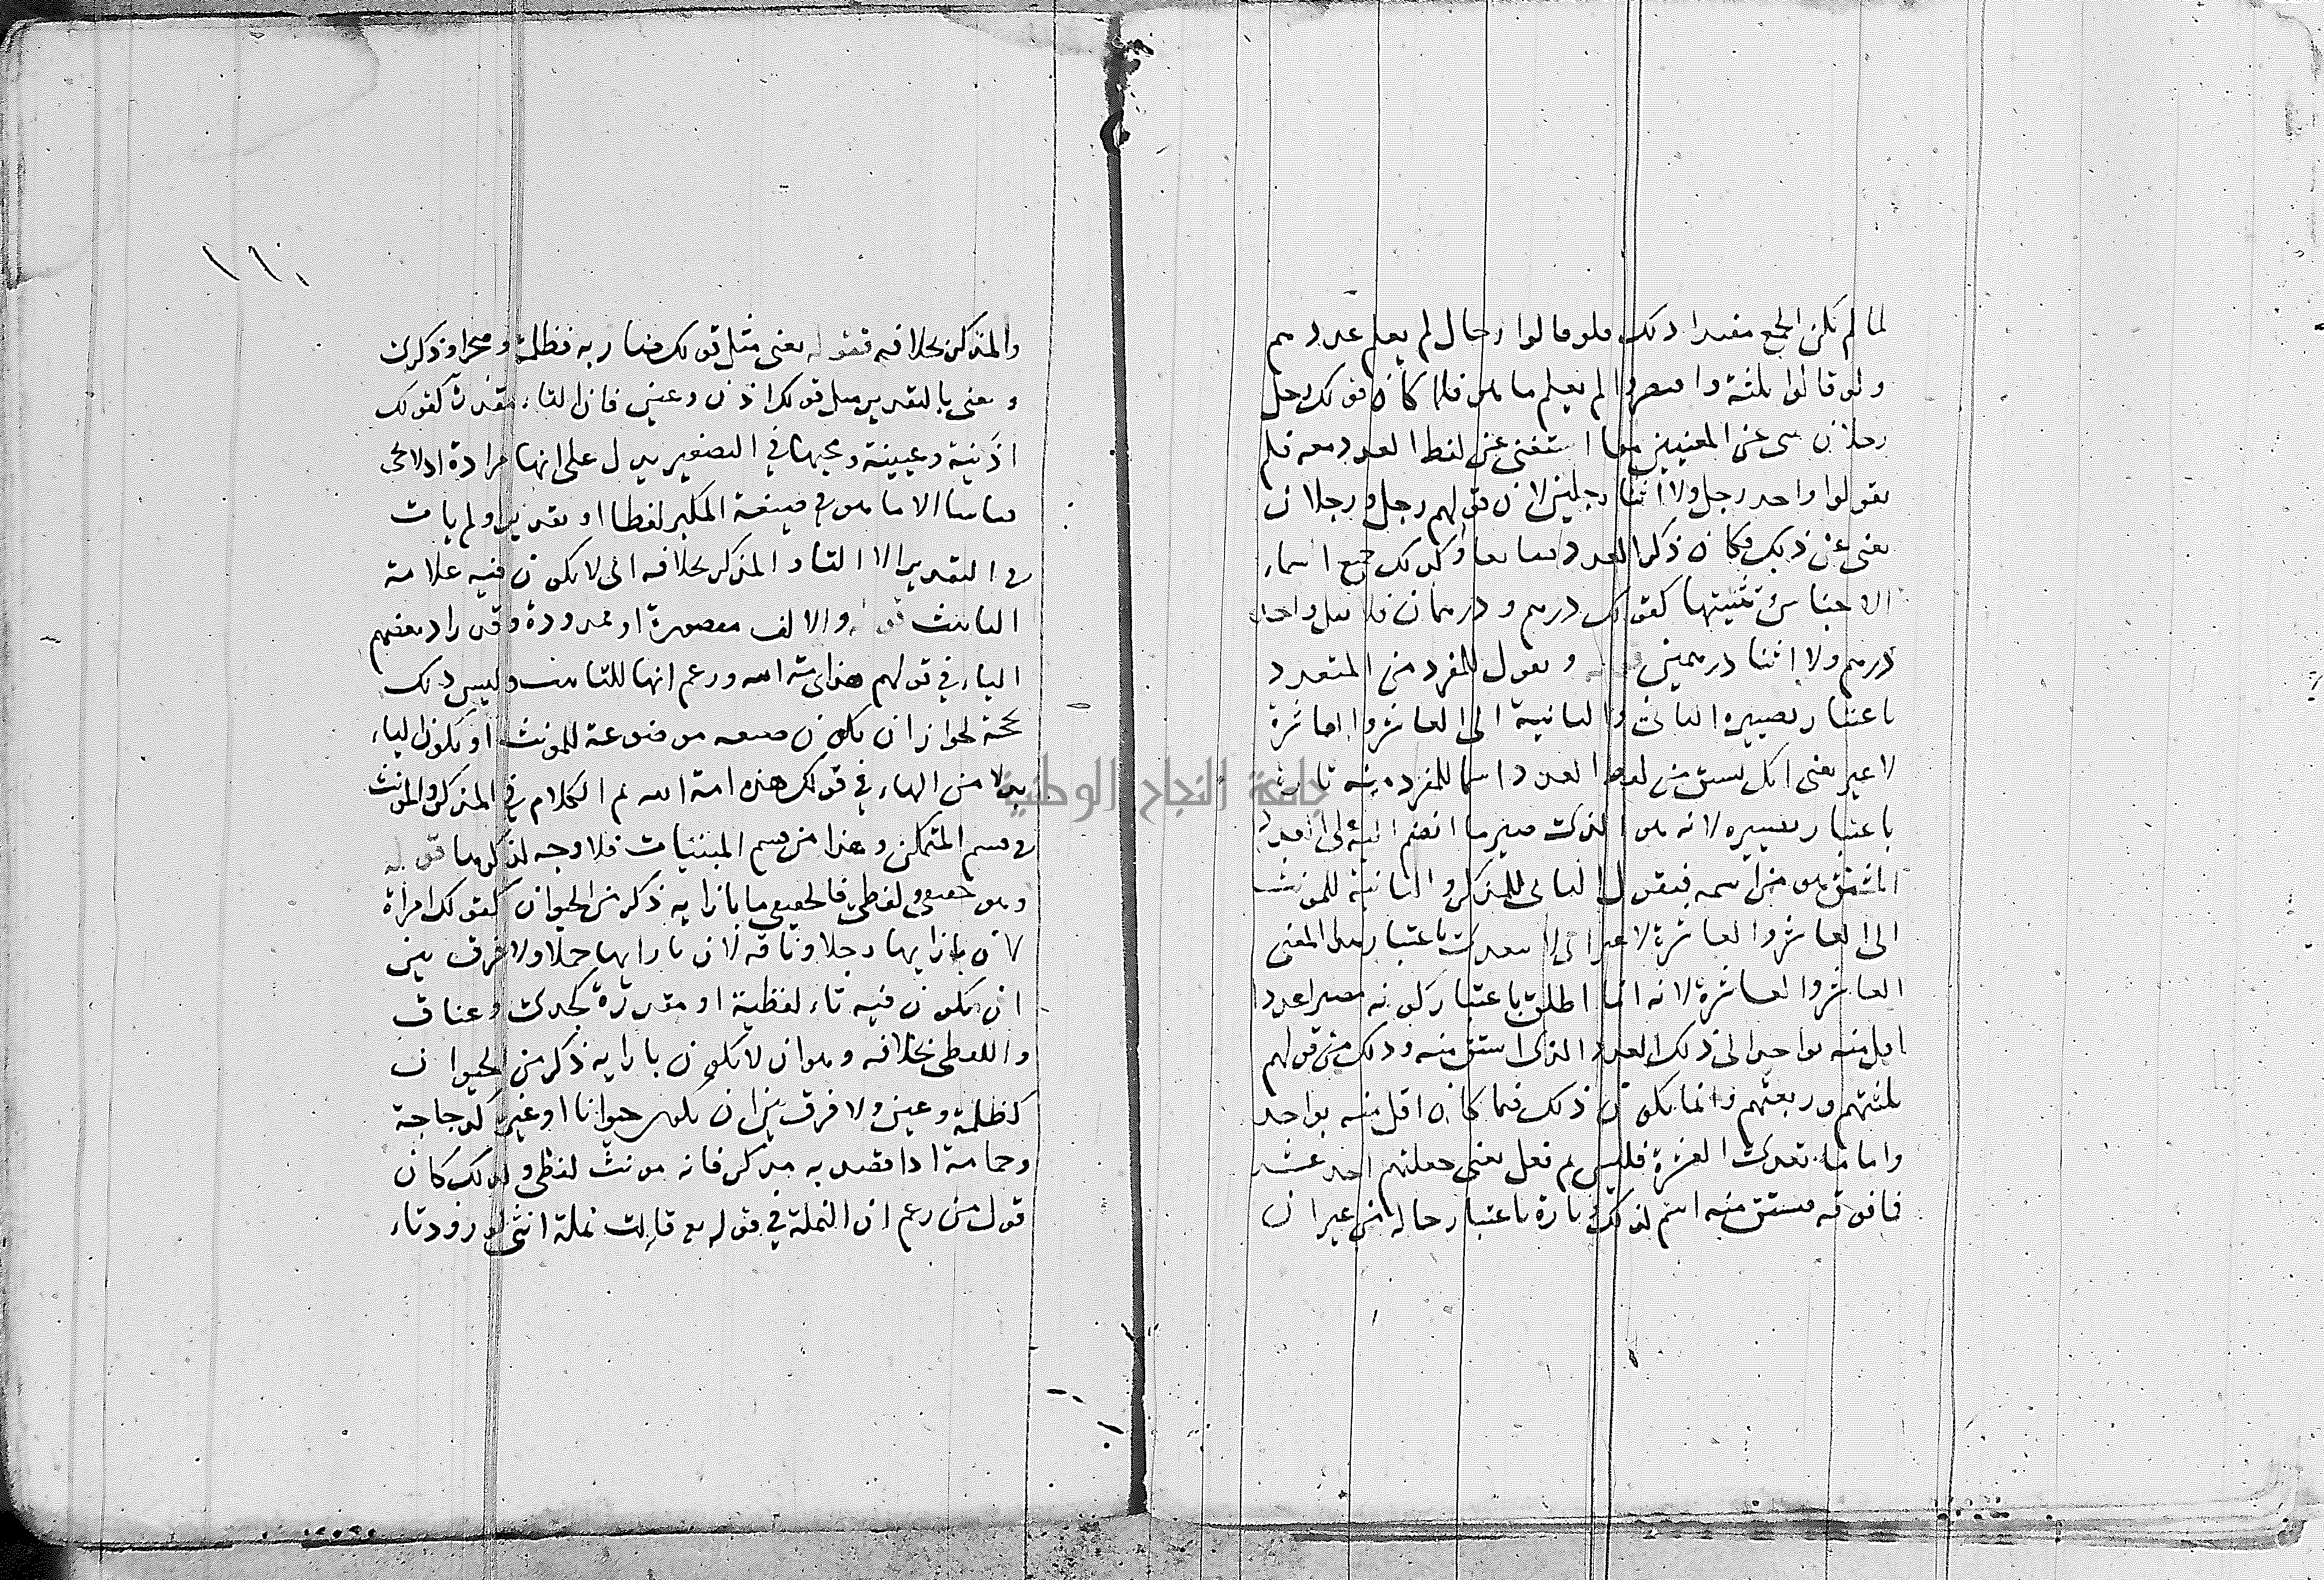 لما لم يكن الجمع مفيدا ذلك فلو قالوا رجال لم يعلم عددهم
ولو قالوا ثلثة واقتصروا لم يعلم ما هو فلما كان قولك رجل
رجلان يبنى عن المعنيين معا استغنى عن لفظ العدد معه فلم
يقولوا واحد رجل ولا اثنا رجلين لان قولهم رجل ورجلان
يغنى عن ذلك فكان ذكر العدد ضايعا وكذلك جميع اسماء
الاجناس في تثنيتها كقولك درهم ودرهمان فلا تقل واحد
درهم ولا اثنا درهمين قوله وتقول للمفرد من المتعدد
باعتبار تصييره الثانى والثانية الى العاشر والعاشرة
لا غير يعنى انك تشتق من لفظ العدد اسما للمفرد منه تارة
باعتبار تصييره لانه هو الذى صير ما انضم اليه الى العدد
المشتق هو من اسمه فيقول الثانى للمذكر والثانية للمونث
الى العاشر والعاشرة لا غير اى لا يتعدى باعتبار هذا المعنى
العاشر والعاشرة لانه انما اطلق باعتبار كونه مصيرا عددا
اقل منه بواحد الى ذلك العدد الذى اشتق منه وذلك من قولهم
ثلثتهم وربعتهم وانما يكون ذلك فيما كان اقل منه بواحد
واما ما تعدى العشرة فليس ثم فعل يعنى جعلتهم احد عشر
فما فوقه فيشتق منه اسم لذلك تارة باعتبار حاله من غير ان
١١٠
والمذكر بخلافه فقوله يعنى مثل قولك ضاربه فظلمة وصحراوذكرى
ويعنى بالتقدير مثل قولك اذن وعين فان التاء مقدرة كقولك
اذينة وعيينة ومجيها في التصغير يدل على انها مرادة اذ لا يجى
تانيثا الا ما هو في صيغة المكبر لفظا او تقديرا ولم يات
في التقدير الا التاء والمذكر بخلافه اى لا يكون فيه علامة
التانيث قوله والالف مقصورة او ممدودة وقد زاد بعضهم
الياء في قولهم هذى امة الله وزعم انها للتانيث وليس ذلك
بحجة لجواز ان يكون صيغه موضوعة للمونث او يكون الياء
بدلا من الهاء في قولك هذه امة الله ثم الكلام في المذكر والمونث
في قسم المتمكن وهذا من قسم المبنيات فلا وجه لذكرها قوله
وهو حقيقى ولفظى فالحقيقى ما بازايه ذكر من الحيوان كقولك امراة
لان بازايها رجلا وناقة لان بازايها جملا ولا فرق بين
ان يكون فيه تاء لفظية او مقدرة كجدى وعناق
واللفظى بخلافه وهو ان لا يكون بازايه ذكر من الحيوان
كظلمة وعين ولا فرق بين ان يكون حيوانا او غيره كدجاجة
وحمامة اذا قصد به مذكر فانه مونث لفظى ولذلك كان
قول من زعم ان النملة في قوله تع قالت نملة انثى لورود تاء